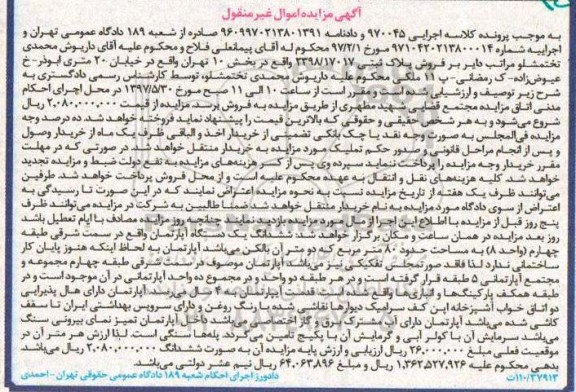 آگهی مزایده اموال غیر منقول
به موجب پرونده کلاسه اجرایی ۹۷۰۰۴۵ و دادنامه ۹۶۰۹۹۷۰۲۱۳۸۰۱۳۹۱ صادره از شعبه ۱۸۹ دادگاه عمومی تهران و
اجراییه شماره ۹۷۱۰۴۲۰۲۱۳۸۰۰۰۱۴ مورخ ۹۷/۲/۱ محکوم له آقای پیمانعلی فلاح و محکوم علیه آقای داریوش محمدی
تختمشلو مراتب دایر بر فروش پلاک ثبتی ۲۳۹۸/۱۷۰۷ واقع در بخش ۱۰ تهران واقع در خیابان ۲۰ متری ابوذر-خ
عیوض‌زاده- ک رمضانی-پ ۱۱ ملکی محکوم علیه داریوش محمدی تختمشلو، توسط کارشناس رسمی دادگستری به
شرح زیر توصیف و ارزشیابی گردیده و مقرر است از ساعت ۱۰ الی ۱۱ صبح مورخ ۱۳۹۷/۵/۳۰ در محل اجرای احکام
مدنی اتاق مزایده مجتمع قضایی شهید مطهری از طریق مزایده به فروش برسد. مزایده از قیمت ۲.۰۸۰.۰۰۰.۰۰۰ ریال
شروع می‌شود و به هر شخص حقیقی و حقوقی که بالاترین قیمت را پیشنهاد نماید فروخته خواهد شد. ده درصد وجه
مزایده فی‌المجلس به صورت وجه نقد یا چک بانکی تضمینی از خریدار اخذ و الباقی ظرف یک ماه از خریدار وصول
و پس از انجام مراحل قانونی و صدور حکم تملیک مورد مزایده به خریدار منتقل خواهد شد. در صورتی که در مهلت
مقرر خریدار وجه مزایده را پرداخت ننماید سپرده وی پس از کسر هزینه‌های مزایده به نفع دولت ضبط و مزایده تجدید
خواهد شد. کلیه هزینه‌های نقل و انتقال به عهده محکوم علیه است و از محل فروش پرداخت خواهد شد. طرفین
می‌توانند ظرف یک هفته از تاریخ مزایده نسبت به نحوه مزایده اعتراض نمایند که در این صورت تا رسیدگی به
اعتراض از سوی دادگاه مورد مزایده به نام خریدار منتقل نخواهد شد ضمنا طالبین به شرکت در مزایده می‌توانند ظرف
پنج روز قبل از مزایده با اطلاع این اجرا از ملک مورد مزایده بازدید نمایند. چنانچه روز مزایده مصادف با ایام تعطیل باشد
روز بعد مزایده در همان ساعت و مکان برگزار خواهد شد. ششدانگ یک دستگاه آپارتمان واقع در سمت شرقی طبقه
چهارم (واحد ۸) به مساحت حدود ۸۰ متر مربع که دو متر آن بالکن می‌باشد آپارتمان به لحاظ اینکه هنوز پایان کار
ساختمانی ندارد لذا فاقد صورتمجلس تفکیکی نیز می‌باشد آپارتمان موصوف در سمت شرقی طبقه چهارم مجموعه و
مجتمع آپارتمانی ۵ طبقه قرار گرفته است و در هر طبقه دو واحد و در مجموع ده واحد آپارتمانی در آن موجود است و در
طبقه همکف پارکینگ‌ها و انباری‌ها واقع شده است قدمت آپارتمان به ۸ سال می‌رسد آپارتمان دارای هال پذیرایی
دو اتاق خواب آشپزخانه اپن کف سرامیک دیوارها نقاشی شده با رنگ روغن و دارای سرویس بهداشتی ایران تا سقف
کاشی شده می‌باشد آپارتمان دارای آب مشترک برق و گاز اختصاصی می‌باشد داخل آپارتمان تمیز نمای بیرونی سنگ
می‌باشد سرمایش آن با کولر آبی و گرمایش آن با پکیج تامین می‌گردد. پله‌ها سنگی است. لذا ارزش هر متر آن در
موقعیت فعلی مبلغ ۲۶.۰۰۰.۰۰۰ ریال ارزیابی و ارزش پایه مزایده آن به صورت ششدانگ ۲.۰۸۰.۰۰۰.۰۰۰ ریال می‌باشد
بدهی محکوم علیه ۱.۳۶۲.۵۲۷.۹۲۶ ریال و مبلغ ۶۴.۰۶۳.۸۹۶ ریال نیم عشر دولتی می‌باشد
۱۱۰/۳۷۹۱۳/ت
دادورز اجرای احکام شعبه ۱۸۹ دادگاه عمومی حقوقی تهران-احمدی